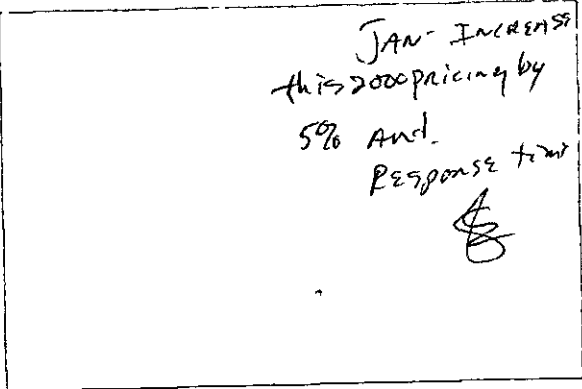 JAN- INCREASE
this 2000 pricing by
5% And.
Response time